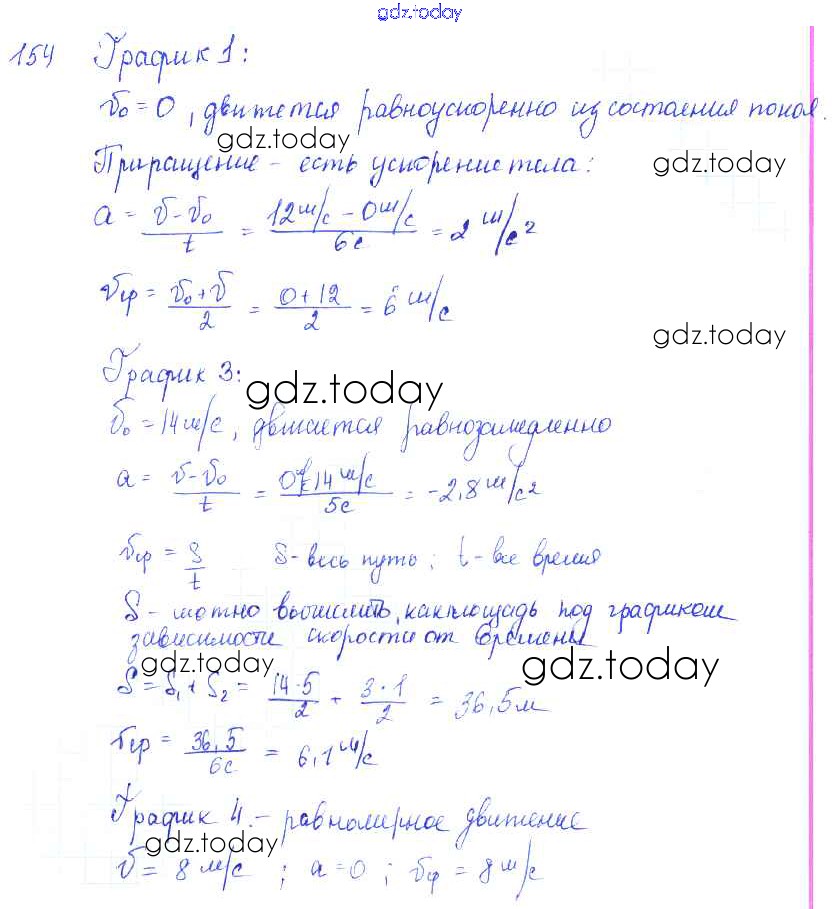 gdz.today
154 График 1:
v₀ = 0, движется равноускоренно из состояния покоя.
gdz.today
Приращение - есть ускорение тела:
gdz.today
a = (v - v₀)/t = (12 м/с - 0 м/с)/6с = 2 м/с²
vср = (v₀ + v)/2 = (0 + 12)/2 = 6 м/с
gdz.today
График 3:
gdz.today
v₀ = 14 м/с, движется равнозамедленно
a = (v - v₀)/t = (0 - 14 м/с)/5с = -2,8 м/с²
vср = S/t S - весь путь; t - все время
S - можно вычислить, как площадь под графиком
зависимости скорости от времени
gdz.today
gdz.today
S = S₁ + S₂ = (14·5)/2 + (3·1)/2 = 36,5 м
vср = 36,5/6с = 6,1 м/с
График 4. - равномерное движение
gdz.today
v = 8 м/с; a = 0; vср = 8 м/с